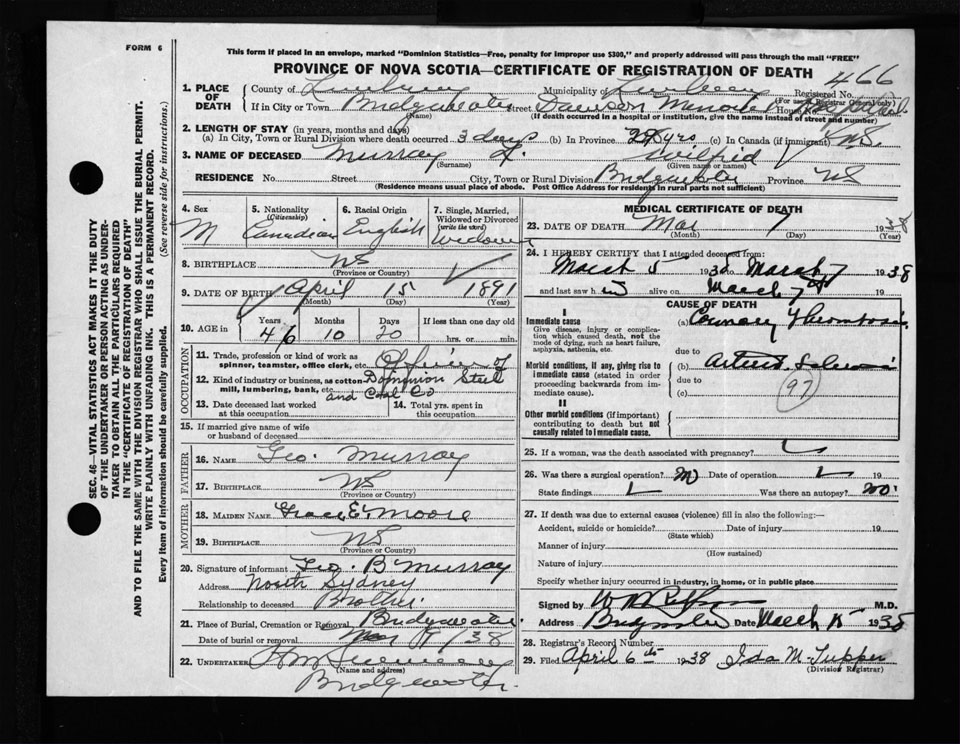 FORM 6
This form if placed in an envelope, marked "Dominion Statistics—Free, penalty for improper use $300," and properly addressed will pass through the mail "FREE"
PROVINCE OF NOVA SCOTIA—CERTIFICATE OF REGISTRATION OF DEATH
466
1. PLACE OF DEATH
County of Lunenburg Municipality of Lunenburg Registered No.
(For use of Registrar General only)
If in City or Town Bridgewater Street Dawson Memorial Hospital
(Name) (If death occurred in a hospital or institution, give the name instead of street and number)
2. LENGTH OF STAY (in years, months and days)
(a) In City, Town or Rural Division where death occurred 3 days (b) In Province yrs (c) In Canada (if immigrant)
3. NAME OF DECEASED Murray Wilfrid
(Surname) (Given name or names)
RESIDENCE No. Street City, Town or Rural Division Bridgewater Province NS
(Residence means usual place of abode. Post Office Address for residents in rural parts not sufficient)
4. Sex M
5. Nationality (Citizenship) Canadian
6. Racial Origin English
7. Single, Married, Widowed or Divorced (write the word) Widower
8. BIRTHPLACE NS
(Province or Country)
9. DATE OF BIRTH April 15 1891
(Month) (Day) (Year)
10. AGE in Years Months Days If less than one day old
46 10 20 hrs. or min.
OCCUPATION
11. Trade, profession or kind of work as spinner, teamster, office clerk, etc. Officer of
12. Kind of industry or business, as cotton mill, lumbering, bank, etc. Dominion Steel
and Coal Co
13. Date deceased last worked at this occupation
14. Total yrs. spent in this occupation
15. If married give name of wife or husband of deceased
FATHER
16. NAME Geo. Murray
17. BIRTHPLACE NS
(Province or Country)
MOTHER
18. MAIDEN NAME Grace E. Moore
19. BIRTHPLACE NS
(Province or Country)
20. Signature of informant Geo. B Murray
Address North Sydney
Relationship to deceased Brother
21. Place of Burial, Cremation or Removal Bridgewater
Date of burial or removal 9/38
22. UNDERTAKER
(Name and address)
Bridgewater
MEDICAL CERTIFICATE OF DEATH
23. DATE OF DEATH Mar 7 1938
(Month) (Day) (Year)
24. I HEREBY CERTIFY that I attended deceased from:
March 5 1938 to March 7 1938
and last saw h alive on March 7 19
CAUSE OF DEATH
I
Immediate cause
Give disease, injury or complication which caused death, not the mode of dying, such as heart failure, asphyxia, asthenia, etc.
(a) Coronary Thrombosis
due to
Morbid conditions, if any, giving rise to immediate cause (stated in order proceeding backwards from immediate cause).
(b)
due to
(c)
97
II
Other morbid conditions (if important) contributing to death but not causally related to immediate cause.
25. If a woman, was the death associated with pregnancy?
26. Was there a surgical operation? Date of operation 19
State findings Was there an autopsy? no
27. If death was due to external causes (violence) fill in also the following:—
Accident, suicide or homicide? Date of injury 19
(State which)
Manner of injury
(How sustained)
Nature of injury
Specify whether injury occurred in industry, in home, or in public place
Signed by M.D.
Address Bridgewater Date March 1938
28. Registrar's Record Number
29. Filed April 6th 1938 Ida M. Tupper
(Division Registrar)
SEC. 46—VITAL STATISTICS ACT MAKES IT THE DUTY
OF THE UNDERTAKER OR PERSON ACTING AS UNDER-
TAKER TO OBTAIN ALL THE PARTICULARS REQUIRED
IN THE "CERTIFICATE OF REGISTRATION OF DEATH"
AND TO FILE THE SAME WITH THE DIVISION REGISTRAR WHO SHALL ISSUE THE BURIAL PERMIT.
WRITE PLAINLY WITH UNFADING INK. THIS IS A PERMANENT RECORD.
Every item of information should be carefully supplied. (See reverse side for instructions.)